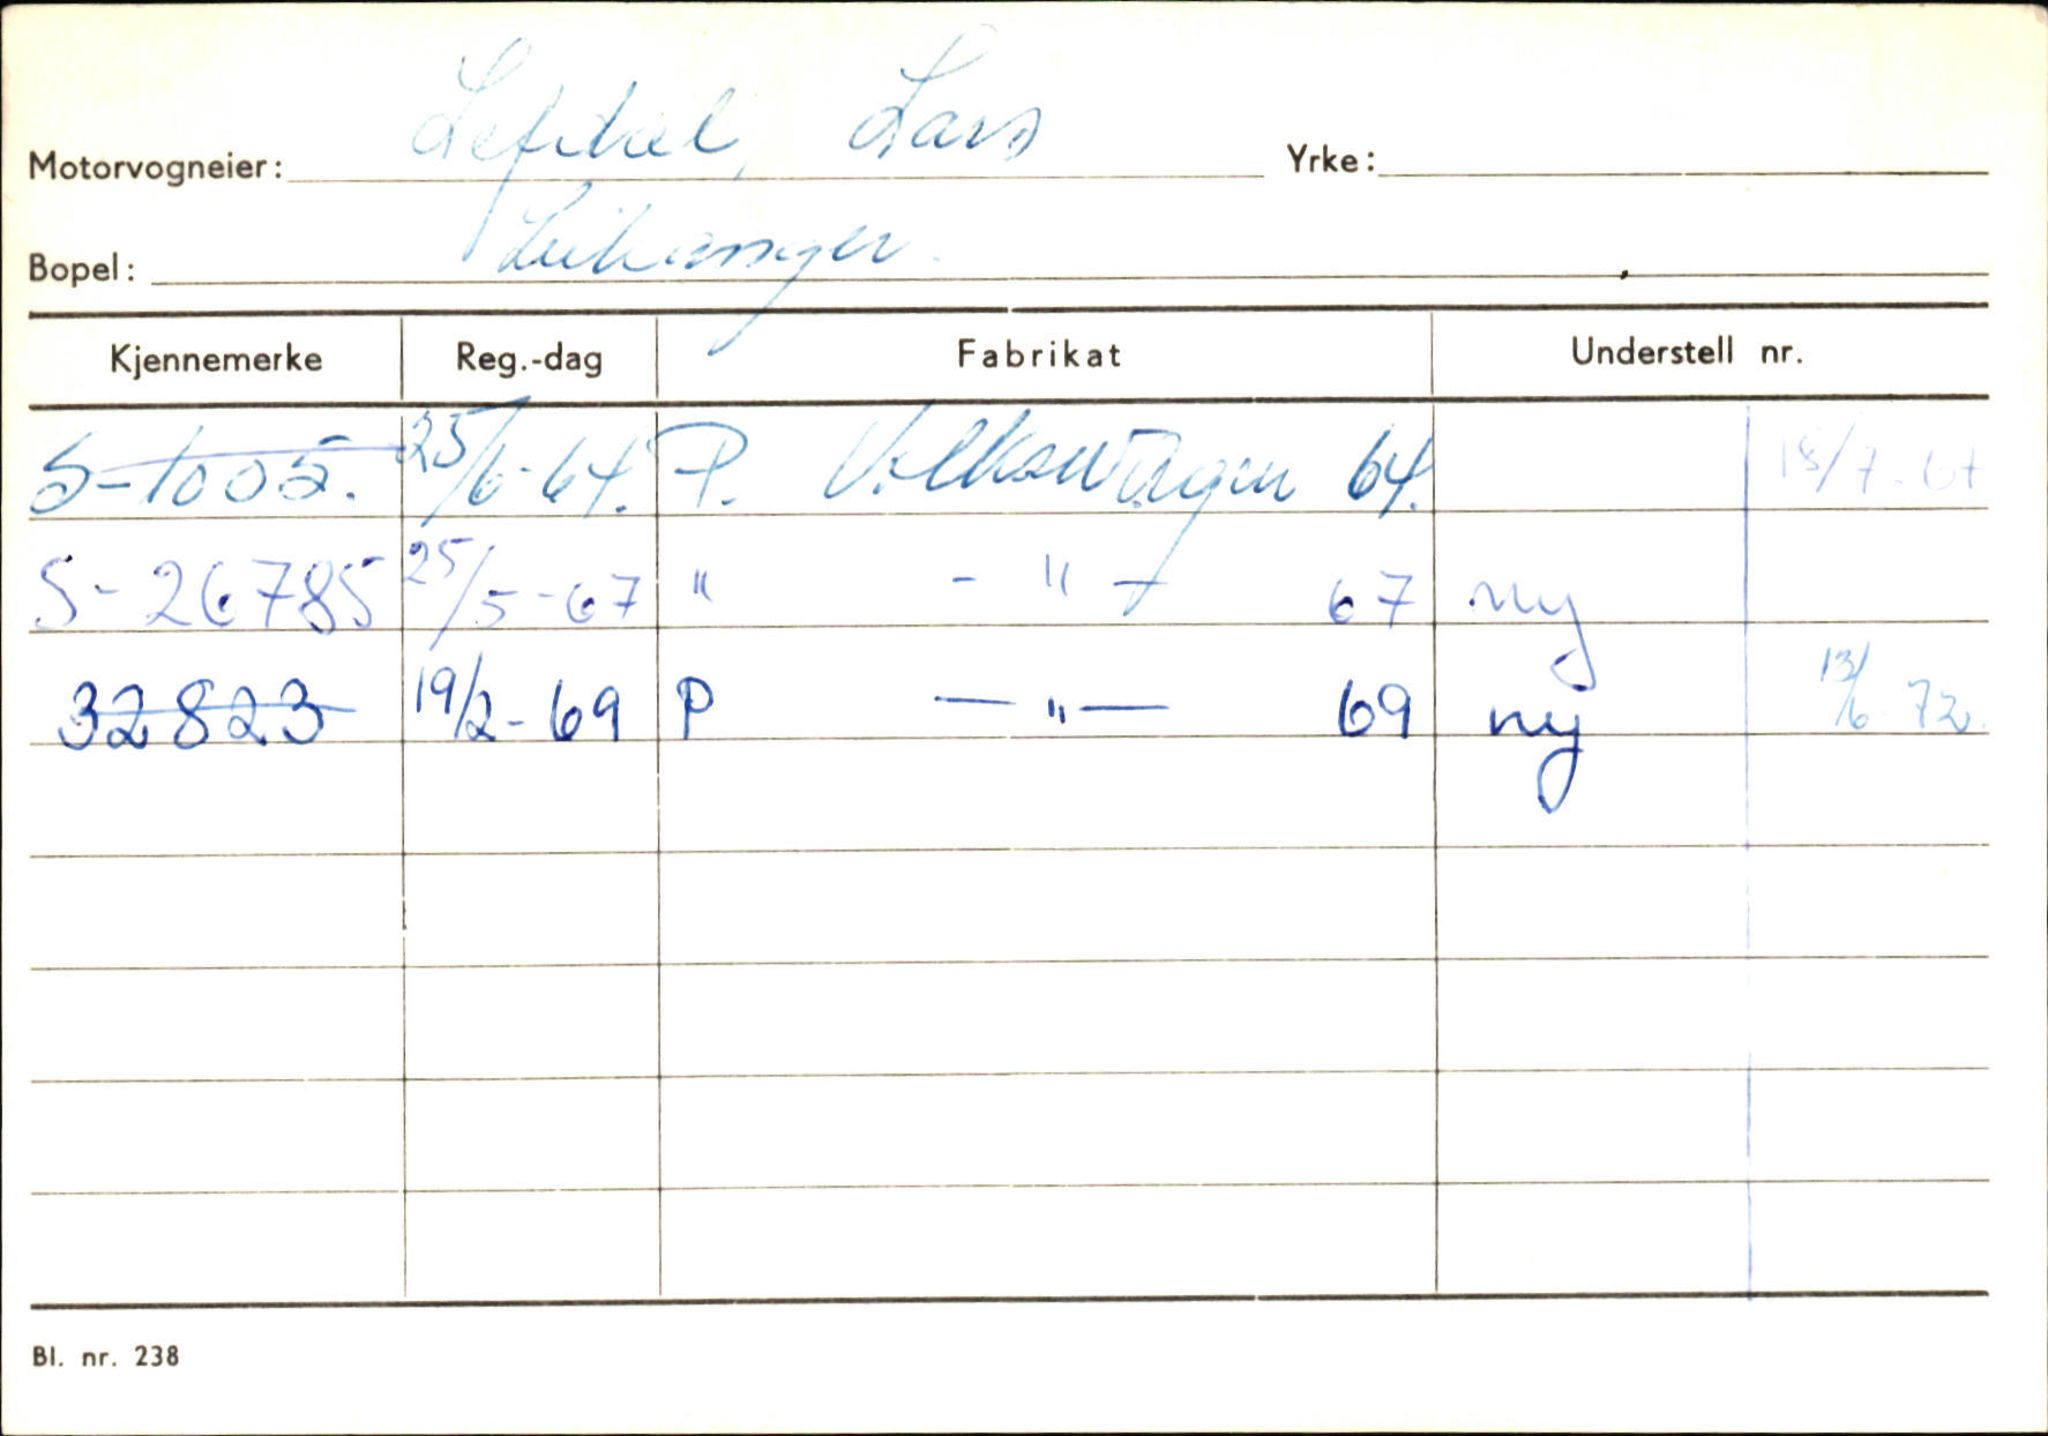 Motorvogneier: Lefdal, Lars Yrke:
Bopel: Leikanger.
Kjennemerke Reg.-dag Fabrikat Understell nr.
S-1005. 25/6-64. P. Volkswagen 64. 18/7-67
S-26785 25/5-67 " - " - 67 ny
32823 19/2-69 P — " — 69 ny 13/6 72.
Bl. nr. 238